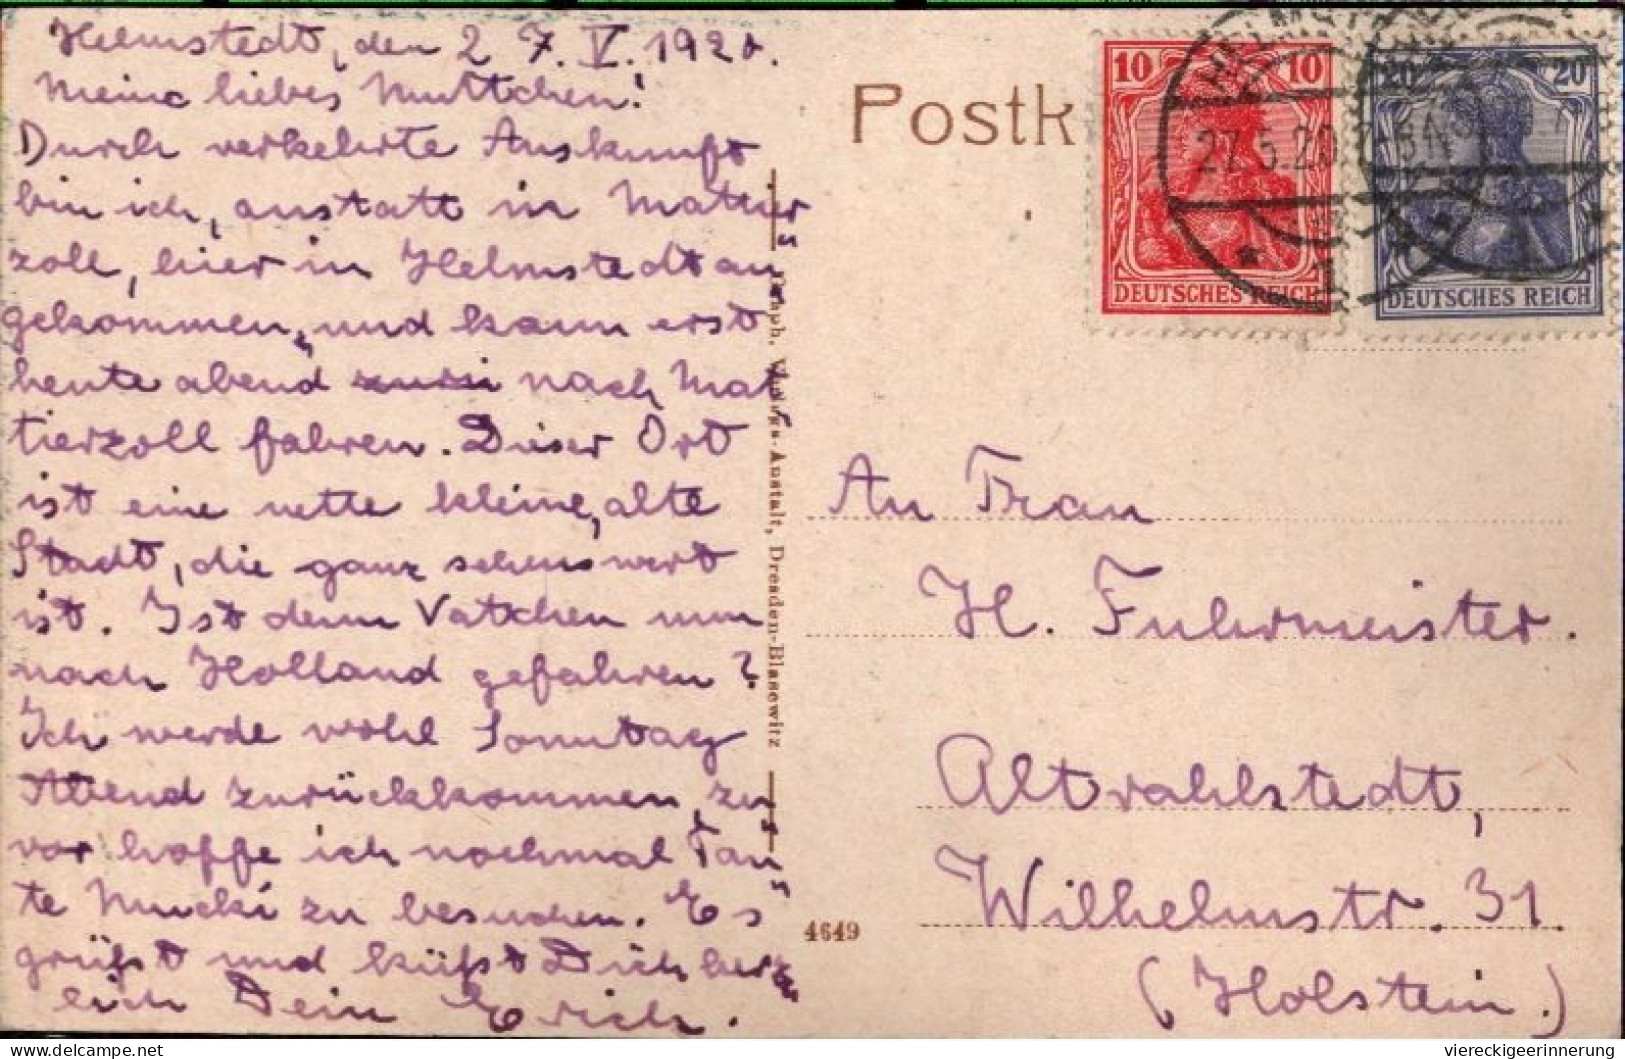 Helmstedt, den 27. V. 1920.
Meine liebes Muttchen!
Durch verkehrte Auskunft
bin ich, anstatt in Mattier„
zoll, hier in Helmstedt an„
gekommen, und kann erst
heute abend nach Mat„
tierzoll fahren. Dieser Ort
ist eine nette kleine, alte
Stadt, die ganz sehenswert
ist. Ist denn Vatchen nun
nach Holland gefahren?
Ich werde wohl Sonntag
Abend zurückkommen, zu„
vor hoffe ich nochmal Tan„
te Mucki zu besuchen. Es
grüßt und küßt Dich herz„
lich Dein Erich.
Graph. Verlags-Anstalt, Dresden-Blasewitz
4649
Postk
10 10
DEUTSCHES REICH
20 20
DEUTSCHES REICH
27.5.20
An Frau
H. Fuhrmeister.
Altrahlstedt,
Wilhelmstr. 31.
(Holstein.)
viereckigeerinnerung
delcampe.net